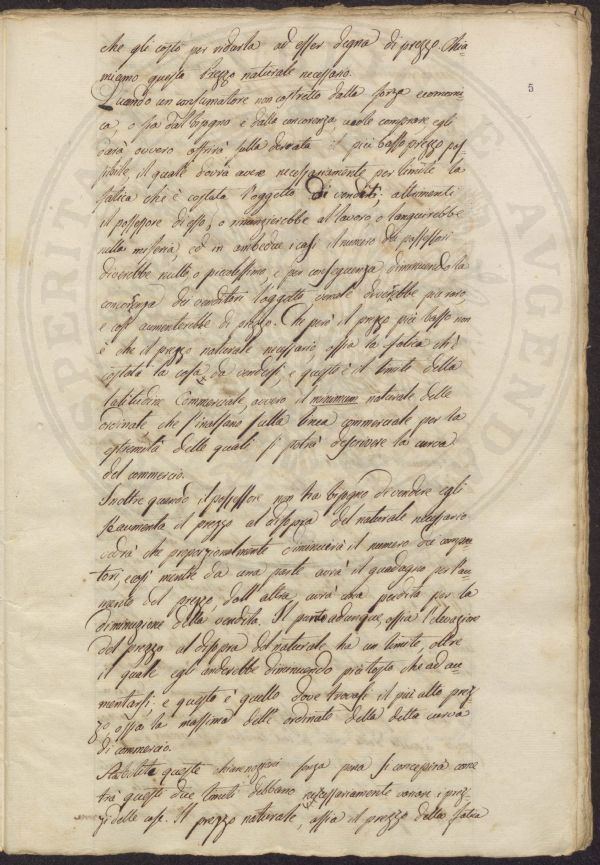 che gli costò per ridurla ad esser degna di prezzo. Chia
miamo questo Prezzo naturale necessario.
5
Quando un consumatore non costretto dalla forza economi
ca, o sia dal bisogno e dalla concorenza vuole comprare egli
darà ovvero offrirà sulla derrata il più basso prezzo pos
sibile, il quale dovrà avere necessariamente per limite la
fatica che è costata l'oggetto da vendersi; altrimenti
il possessore di esso, o rinunzierebbe al lavoro o languirebbe
nella miseria, ed in ambedue i casi il numero dei possessori
diverebbe nullo o piccolissimo, e per conseguenza diminuendo la
concorenza dei venditori l'oggetto venale diverebbe più raro,
e così aumenterebbe di prezzo. Che però il prezzo più basso non
è che il prezzo naturale necessario, ossia la fatica ch'è
costata la cosa da vendersi, e questo è il limite della
latitudine Commerciale, ovvero il minimum naturale delle
ordinate che s'inalzano sulla linea commerciale per la
estremità delle quali si potrà descrivere la curva
del commercio.
Inoltre quando il possessore non ha bisogno di vendere egli
se aumenta il prezzo al disopra del naturale necessario
vedrà che proporzionalmente diminuirà il numero dei compra
tori, e così mentre da una parte avrà il guadagno per l'au
mento del prezzo, dall'altra avrà una perdita per la
diminuzione della vendita. Il punto adunque, ossia l'elevazione
del prezzo al disopra del naturale, ha un limite, oltre
il quale egli anderebbe diminuendo piu tosto che ad au
mentarsi, e questo è quello dove trovasi il più alto prez
zo, ossia la massima delle ordinate della detta curva
di commercio.
Stabilite queste chiare nozioni senza pena si concepirà come
trà questi due limiti debbano necessariamente variare i prez
zi delle cose. Il prezzo naturale, ossia il prezzo della fatica